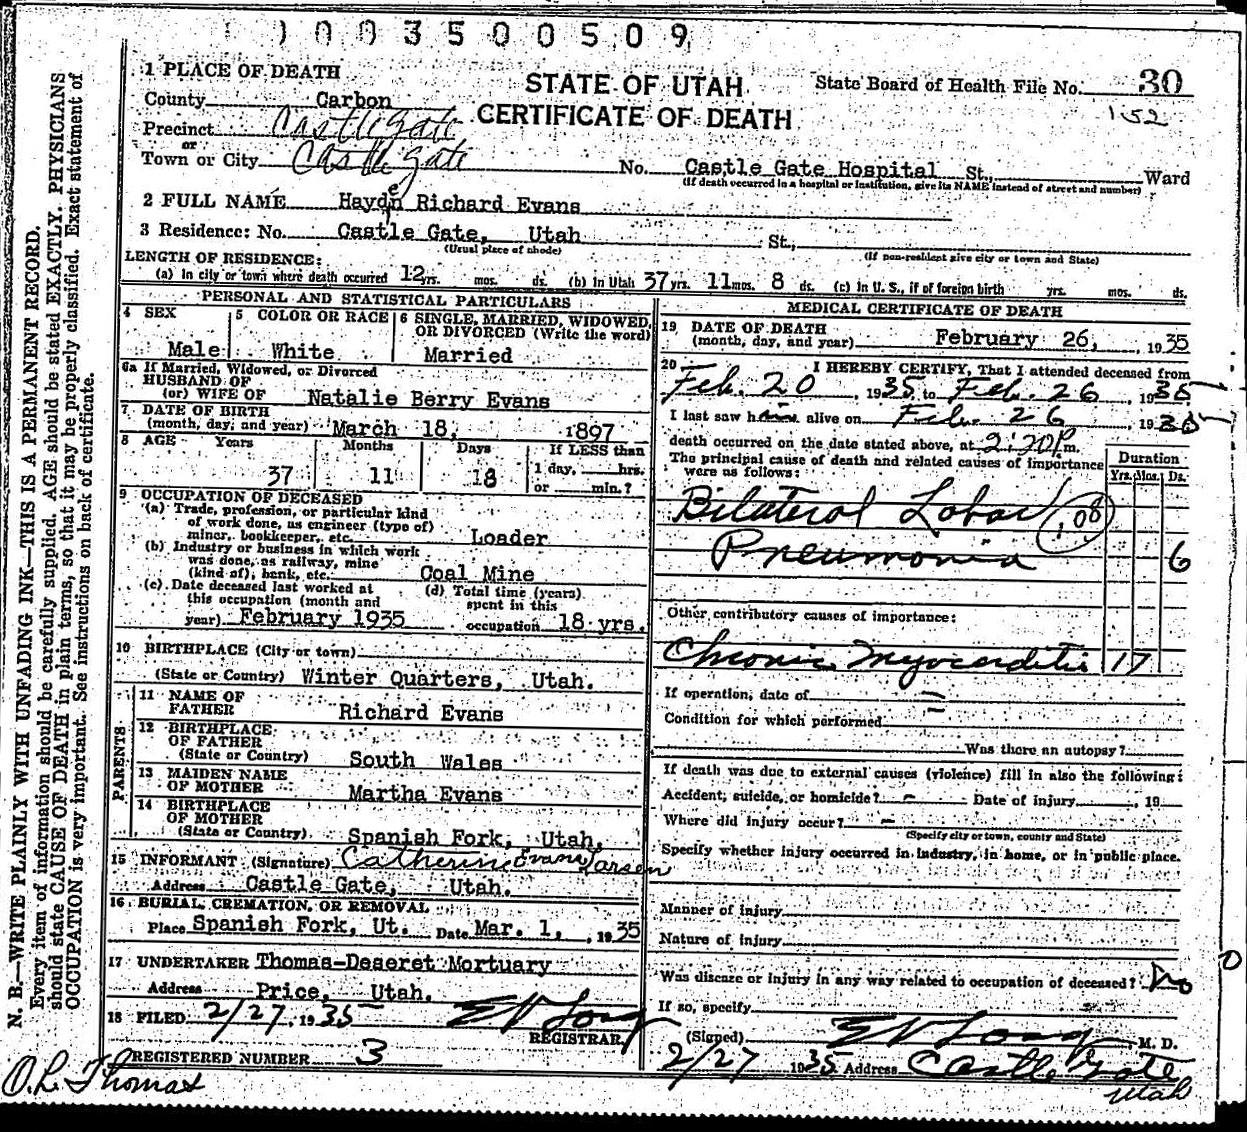 1003500509
1 PLACE OF DEATH
STATE OF UTAH
CERTIFICATE OF DEATH
State Board of Health File No. 30
152
County Carbon
Precinct Castlegate
or
Town or City Castle gate No. Castle Gate Hospital St., Ward
(If death occurred in a hospital or institution, give its NAME instead of street and number)
2 FULL NAME Haydn Richard Evans
e
3 Residence: No. Castle Gate, Utah St.,
(Usual place of abode) (If non-resident give city or town and State)
LENGTH OF RESIDENCE:
(a) In city or town where death occurred 12 yrs. mos. ds. (b) In Utah 37 yrs. 11 mos. 8 ds. (c) In U. S., if of foreign birth yrs. mos. ds.
PERSONAL AND STATISTICAL PARTICULARS
4 SEX
Male
5 COLOR OR RACE
White
6 SINGLE, MARRIED, WIDOWED, OR DIVORCED (Write the word)
Married
6a If Married, Widowed, or Divorced
HUSBAND OF
(or) WIFE OF Natalie Berry Evans
7 DATE OF BIRTH
(month, day, and year) March 18, 1897
8 AGE Years Months Days If LESS than
37 11 18 1 day, hrs.
or min.?
9 OCCUPATION OF DECEASED
(a) Trade, profession, or particular kind
of work done, as engineer (type of)
miner, bookkeeper, etc. Loader
(b) Industry or business in which work
was done, as railway, mine
(kind of), bank, etc. Coal Mine
(c) Date deceased last worked at
this occupation (month and
year) February 1935
(d) Total time (years)
spent in this
occupation 18 yrs.
10 BIRTHPLACE (City or town)
(State or Country) Winter Quarters, Utah.
PARENTS
11 NAME OF
FATHER Richard Evans
12 BIRTHPLACE
OF FATHER
(State or Country) South Wales
13 MAIDEN NAME
OF MOTHER Martha Evans
14 BIRTHPLACE
OF MOTHER
(State or Country) Spanish Fork, Utah,
15 INFORMANT (Signature) Catherine Evans Larsen
Address Castle Gate, Utah.
16 BURIAL, CREMATION, OR REMOVAL
Place Spanish Fork, Ut. Date Mar. 1, 1935
17 UNDERTAKER Thomas-Deseret Mortuary
Address Price, Utah.
18 FILED 2/27, 1935 E V Long
REGISTRAR
REGISTERED NUMBER 3
O. L. Thomas
MEDICAL CERTIFICATE OF DEATH
19 DATE OF DEATH
(month, day, and year) February 26, 1935
20 I HEREBY CERTIFY, That I attended deceased from
Feb. 20, 1935 to Feb. 26 1935
I last saw him alive on Feb. 26 1935
death occurred on the date stated above, at 2:20 P.m.
The principal cause of death and related causes of importance
were as follows:
Duration
Yrs. Mos. Ds.
Bilateral Lobar 108
Pneumonia 6
Other contributory causes of importance:
Chronic Myocarditis 17
If operation, date of
Condition for which performed
Was there an autopsy?
If death was due to external causes (violence) fill in also the following:
Accident, suicide, or homicide? - Date of injury , 19
Where did injury occur? -
(Specify city or town, county and State)
Specify whether injury occurred in industry, in home, or in public place.
Manner of injury
Nature of injury
Was disease or injury in any way related to occupation of deceased? No
If so, specify
(Signed) E V Long, M. D.
2/27 1935 Address Castle Gate
Utah
N. B.—WRITE PLAINLY WITH UNFADING INK—THIS IS A PERMANENT RECORD.
Every item of information should be carefully supplied. AGE should be stated EXACTLY. PHYSICIANS
should state CAUSE OF DEATH in plain terms, so that it may be properly classified. Exact statement of
OCCUPATION is very important. See instructions on back of certificate.